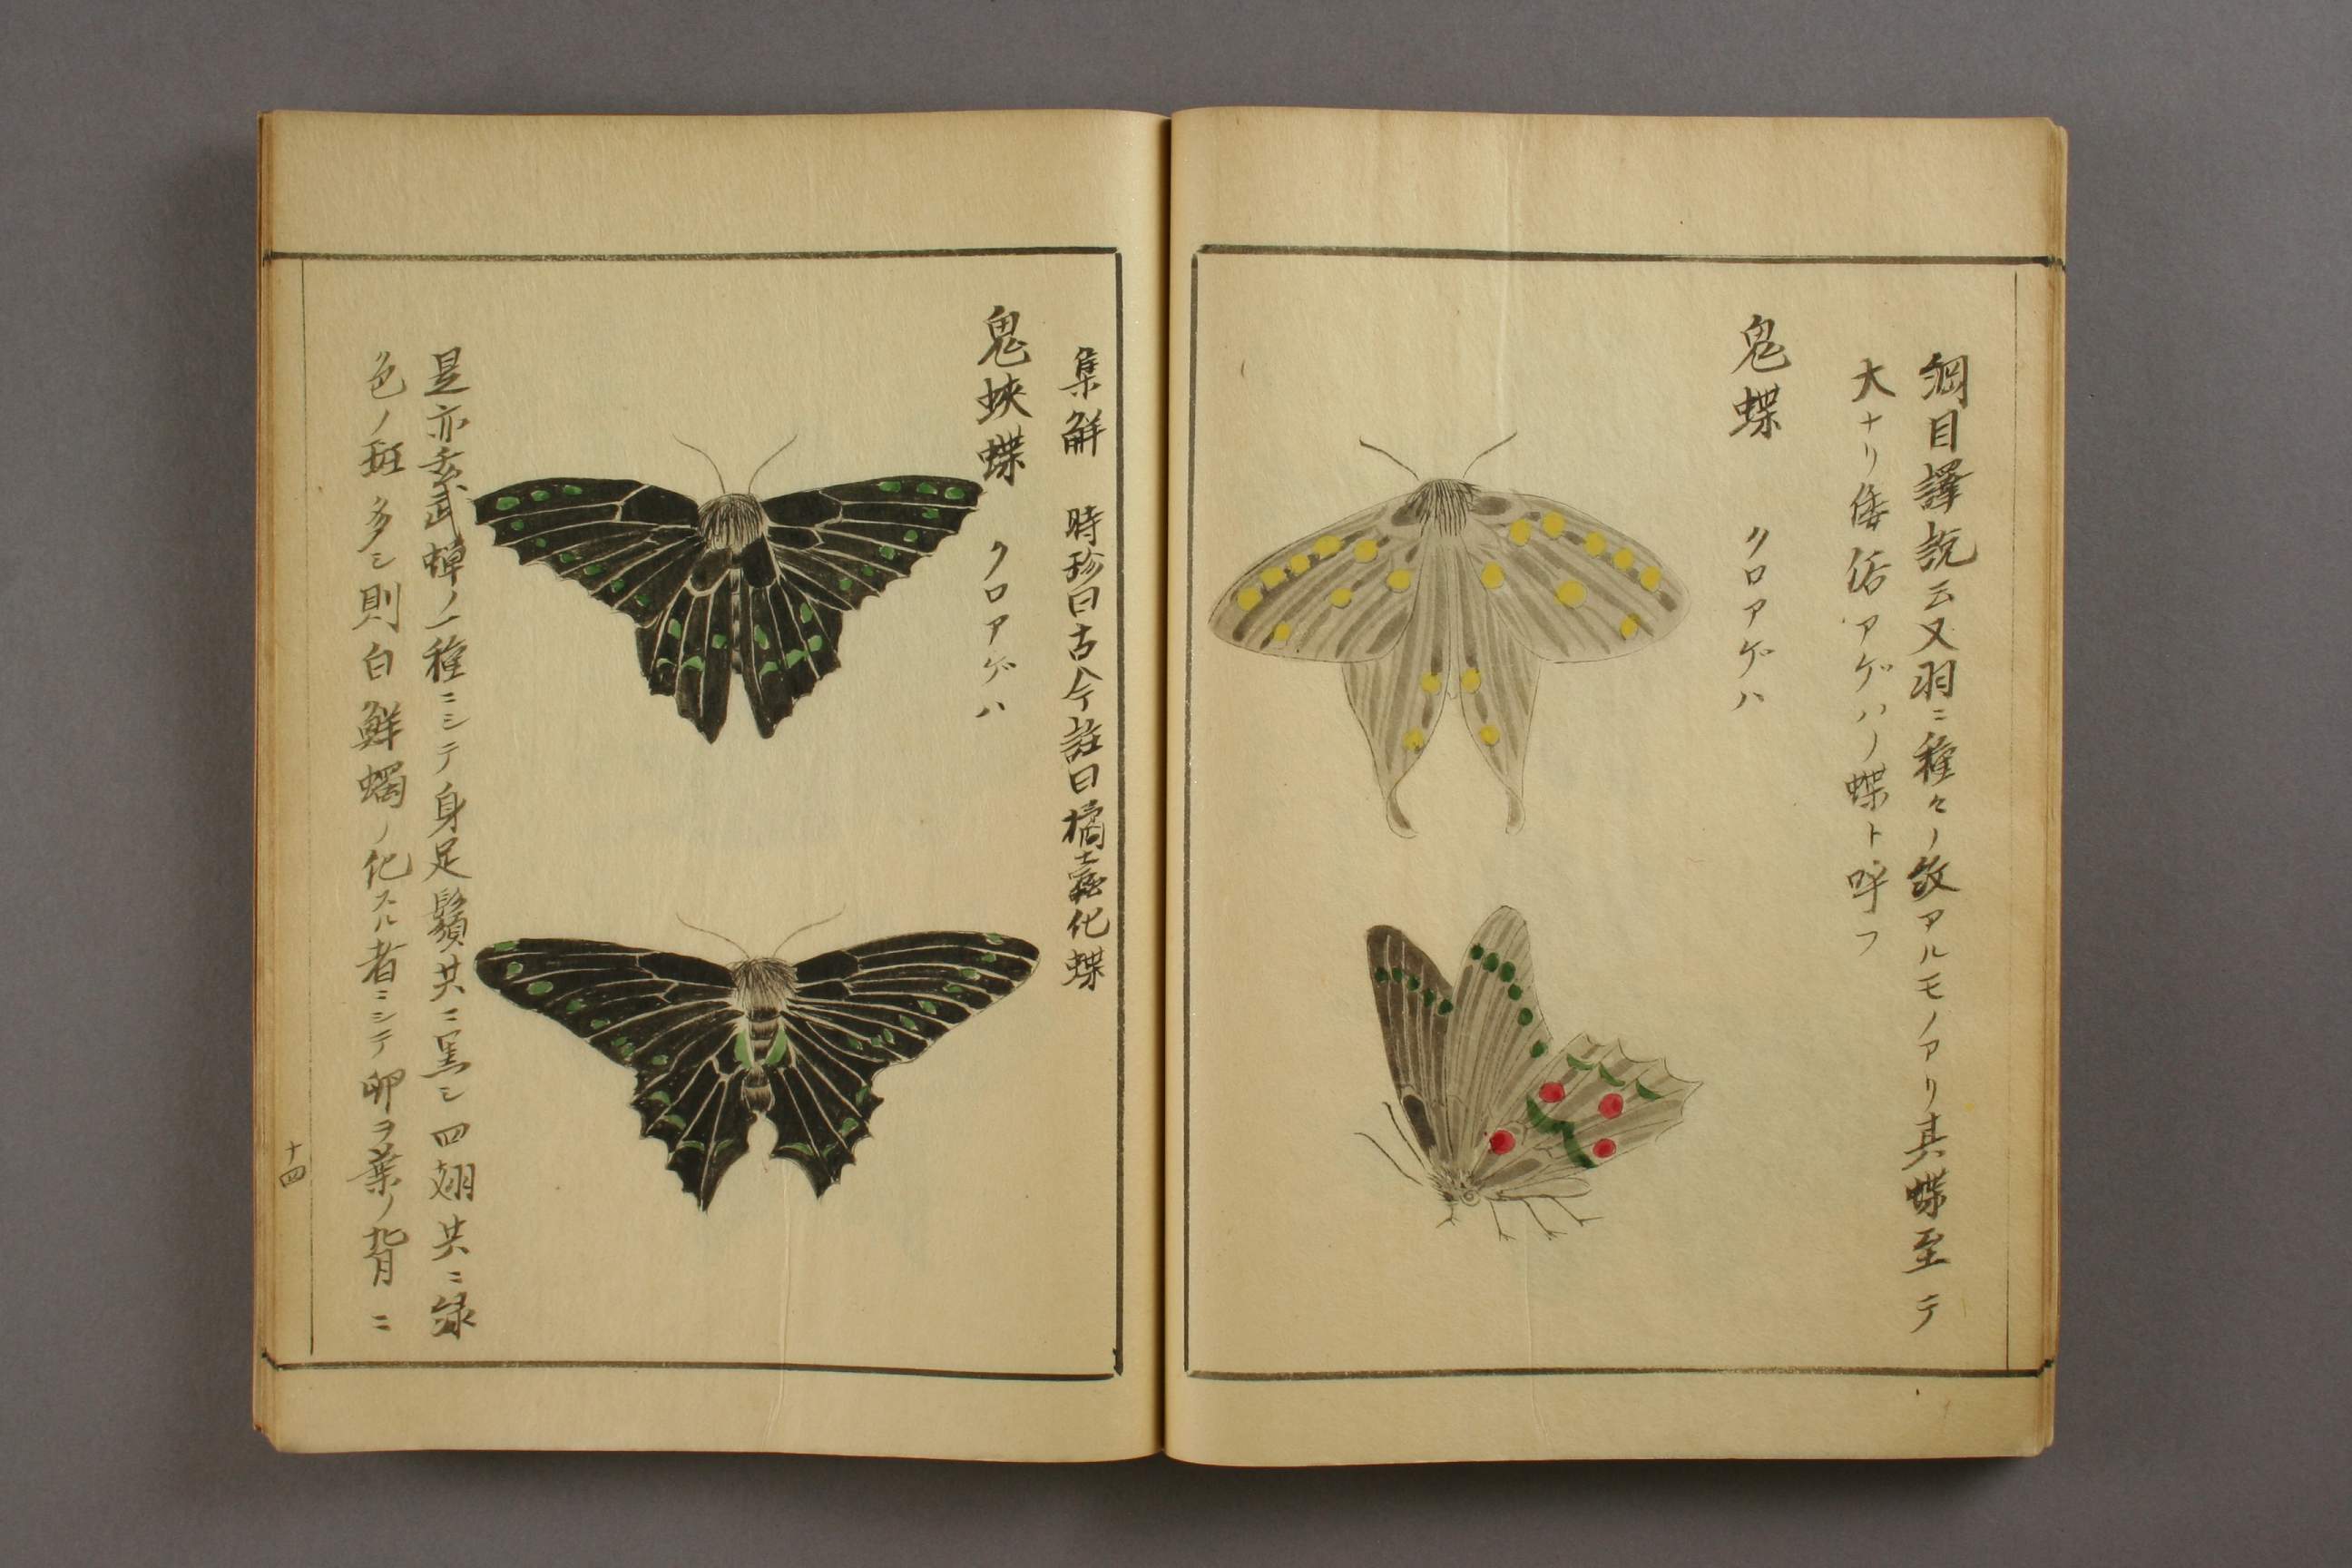 綱目譯説云又羽ニ種々ノ紋アルモノアリ其蝶至テ
大ナリ倭俗アゲハノ蝶ト呼フ
鬼蝶　クロアゲハ
集解　時珍曰古今註曰橘蠹化蝶
鬼蛺蝶　クロアゲハ
是亦玄武蟬ノ一種ニシテ身足鬚共ニ黒シ四翅共ニ緑
色ノ斑多シ則白鮮蠋ノ化スル者ニシテ卵ヲ葉ノ背ニ
十四